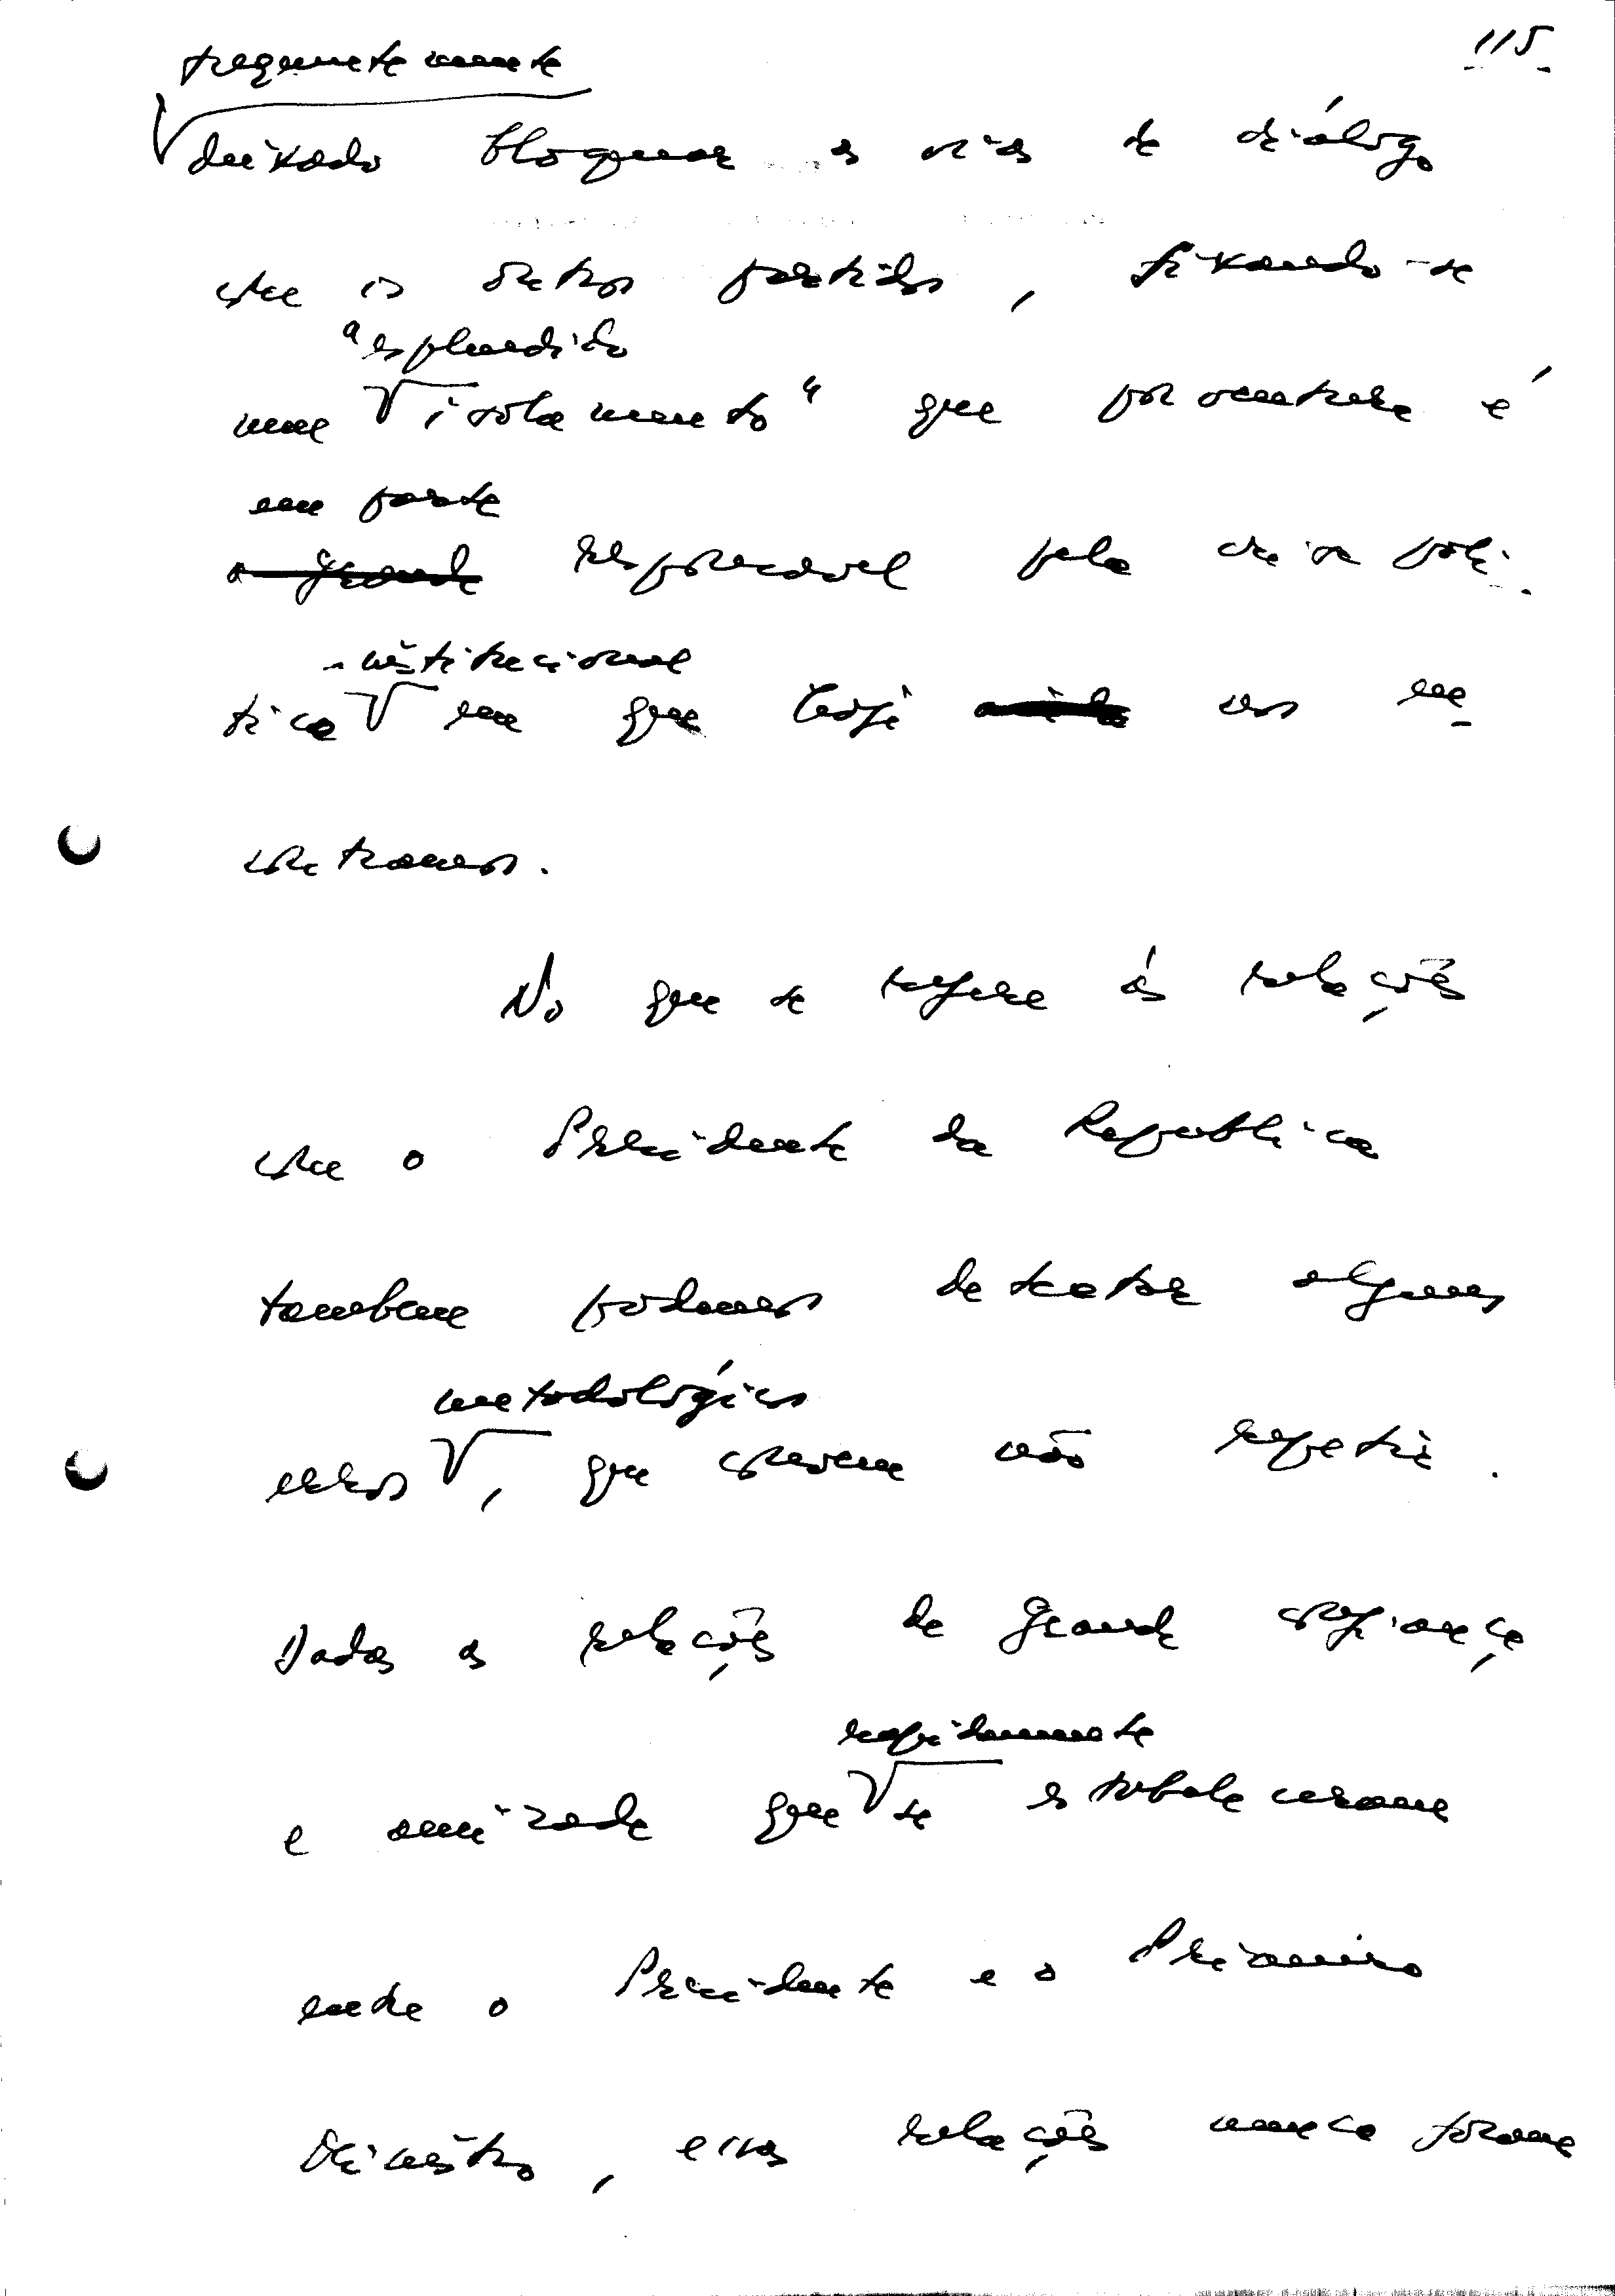 115
frequentemente
deixado bloquear as vias de diálogo
com os outros partidos, fixando-se
"esplendido
num isolamento" que porventura é
em parte
o grande responsavel pela crise polí-
-institucional
tica em que hoje nos en-
contramos.
No que se refere ás relações
com o Presidente da Republica
tambem podemos detectar alguns
metodológicos
erros, que convem não repetir.
Dadas as relações de grande confiança
rapidamente
e amizade que se estabeleceram
entre o Presidente e o Primeiro
Ministro, essas relações nunca foram